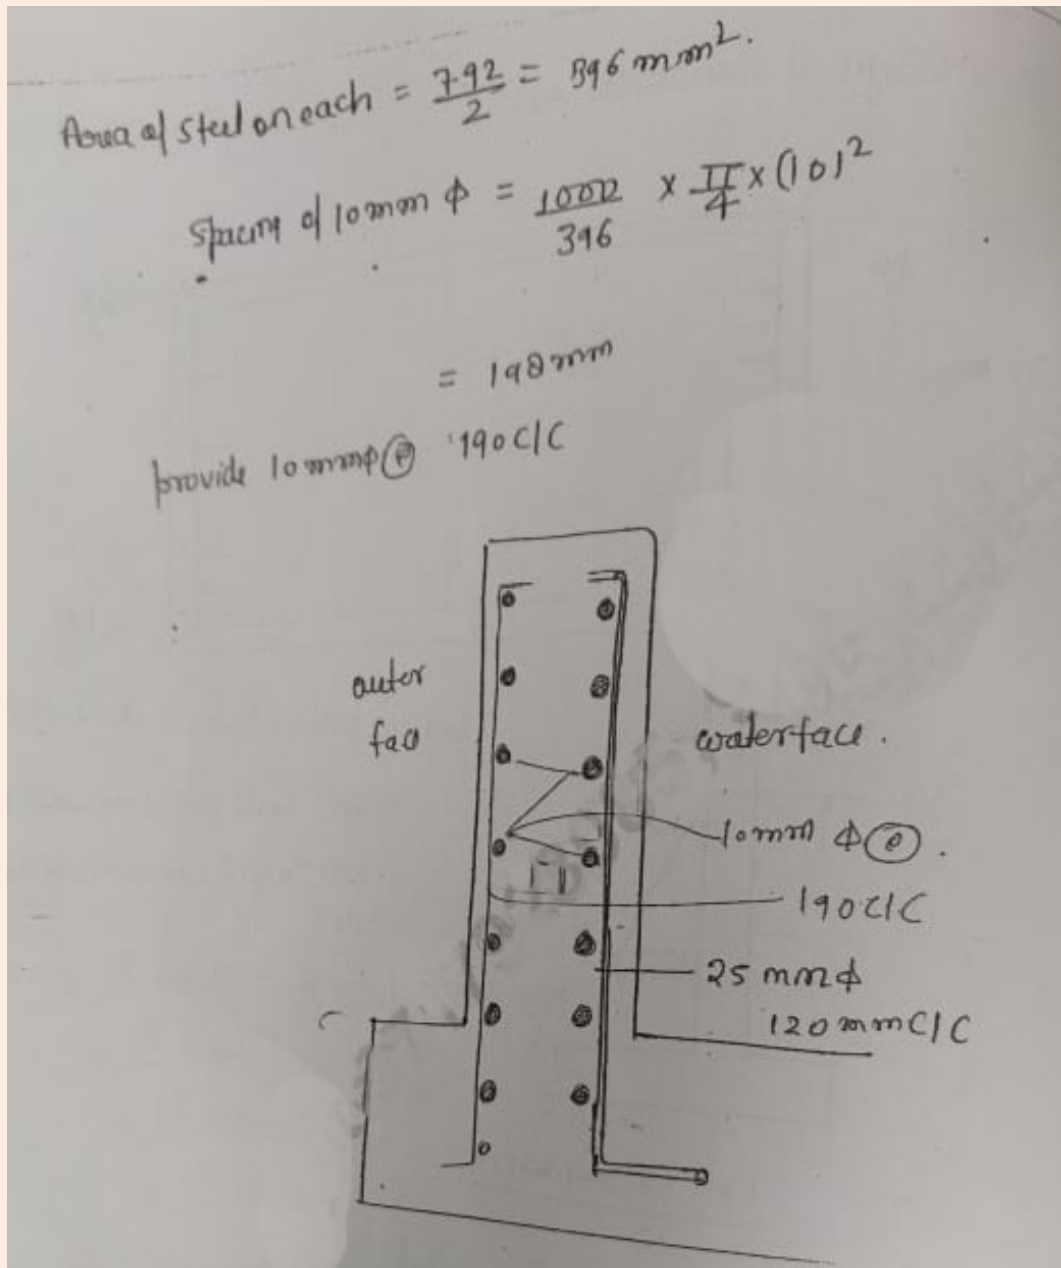 Area of steel on each = 792/2 = 396 mm².
Spacing of 10mm φ = 1000/396 × π/4 × (10)²
= 198 mm
provide 10 mmφ @ 190 C/C
outer
face
waterface.
10mm φ @.
190 C/C
25 mm φ
120 mm C/C